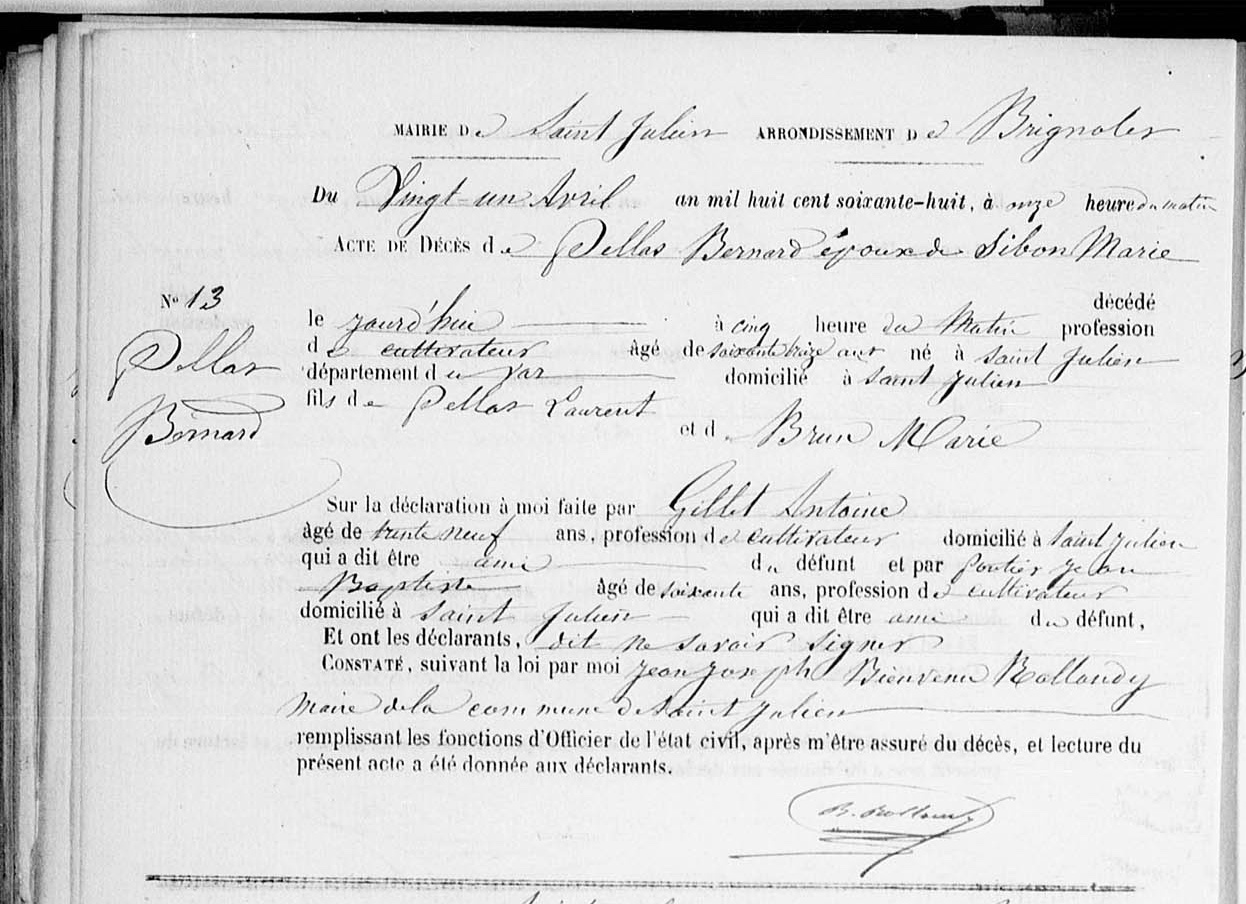 MAIRIE De Saint Julien ARRONDISSEMENT De Brignoles
Du Vingt un Avril an mil huit cent soixante-huit, à onze heure du matin
ACTE DE DÉCÈS de Pellas Bernard époux de Sibon Marie
No 13
décédé
le jourd'hui à cinq heure du Matin profession
de cultivateur âgé de soixante treize ans né à Saint Julien
Pellas
département du Var domicilié à Saint Julien
fils de Pellas Laurent
Bernard
et de Brun Marie
Sur la déclaration à moi faite par Gillet Antoine
âgé de trente neuf ans, profession de cultivateur domicilié à Saint Julien
qui a dit être ami du défunt et par Jean
Baptiste âgé de soixante ans, profession de cultivateur
domicilié à Saint Julien qui a dit être ami du défunt,
Et ont les déclarants, dit ne savoir signer
CONSTATÉ, suivant la loi par moi Jean Joseph Bienvenu Rollandy
Maire de la commune de Saint Julien
remplissant les fonctions d'Officier de l'état civil, après m'être assuré du décès, et lecture du
présent acte a été donnée aux déclarants.
B. Rollandy